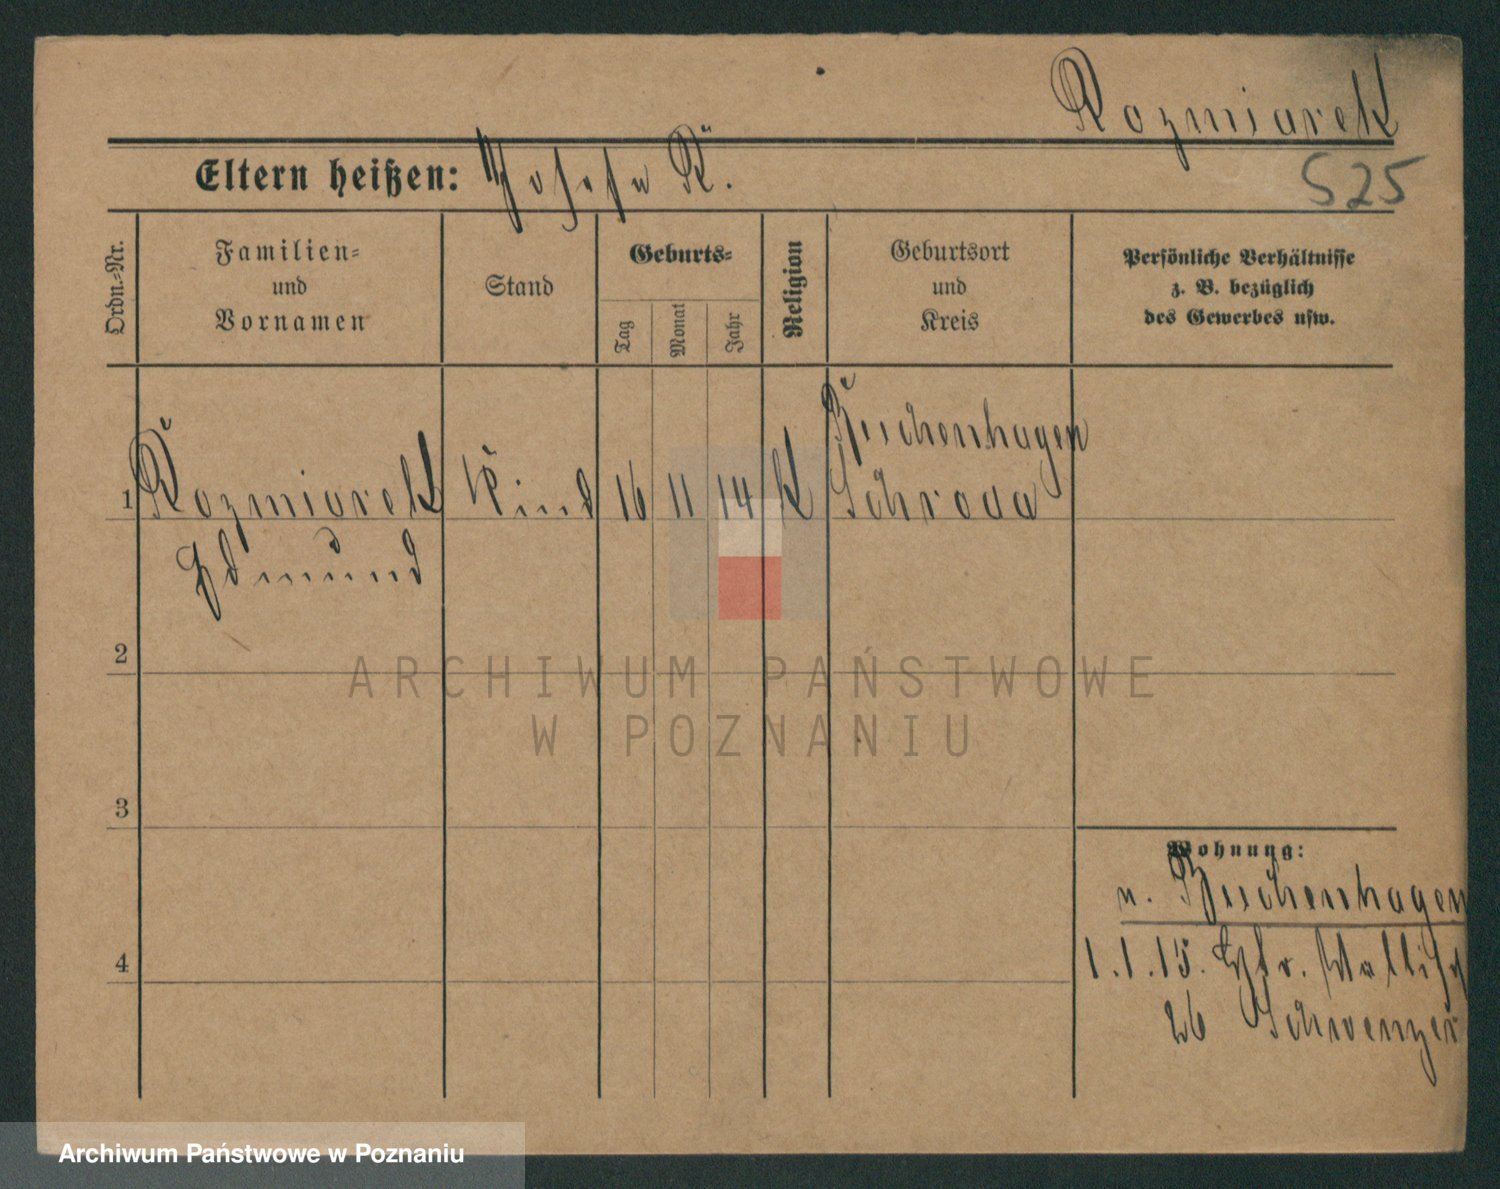 Rozmiarek
Eltern heißen: Josefa R.
525
Ordn.-Nr.
Familien-
und
Vornamen
Stand
Geburts-
Tag
Monat
Jahr
Religion
Geburtsort
und
Kreis
Persönliche Verhältnisse
z. B. bezüglich
des Gewerbes usw.
Buchenhagen
1 Rozmiarek Kind 16 11 14 K Schroda
Edmund
2
3
4
Wohnung:
n. Buchenhagen
1.1.15. Wallisch
26 Schwenzer
ARCHIWUM PAŃSTWOWE
W POZNANIU
Archiwum Państwowe w Poznaniu